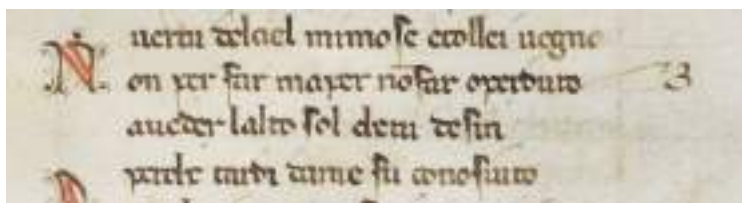 uertu delciel mimose ecollei uegno
Non per far maper nofar operduto 3
aueder lalto sol che tu desiri
tardi dame fu conosuito